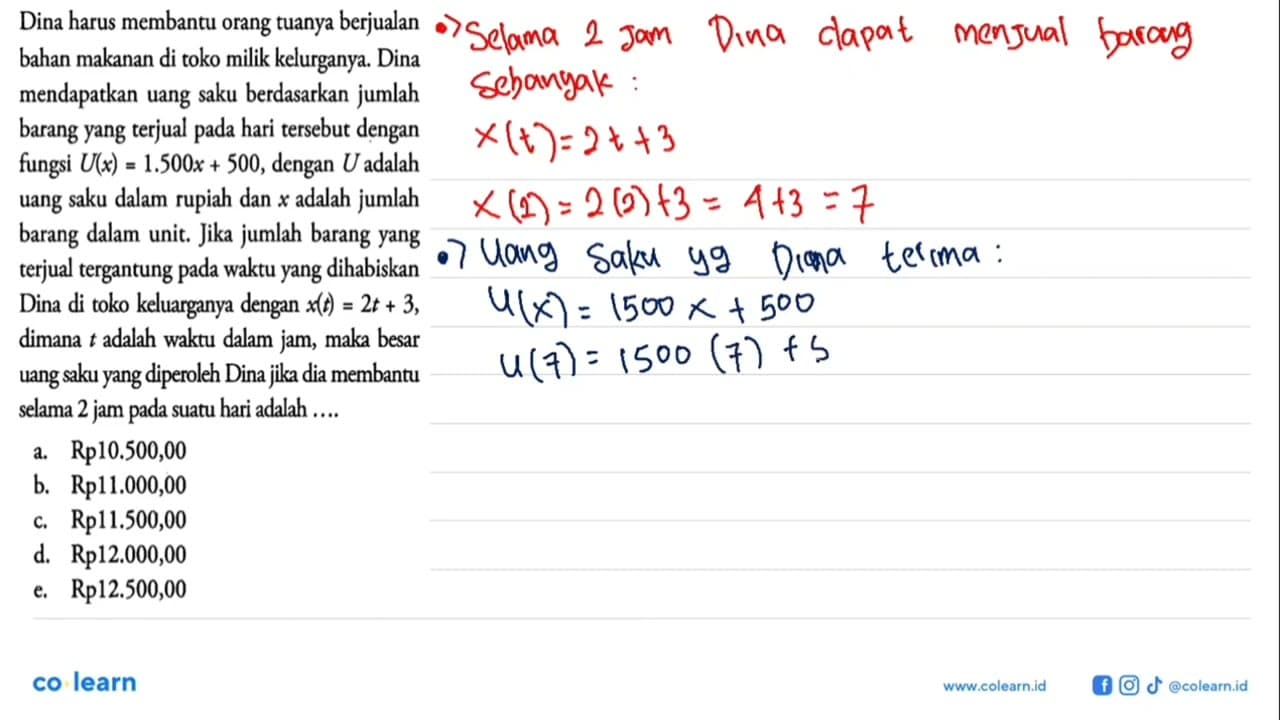 Dina harus membantu orang tuanya berjualan
bahan makanan di toko milik kelurganya. Dina
mendapatkan uang saku berdasarkan jumlah
barang yang terjual pada hari tersebut dengan
fungsi U(x) = 1.500x + 500, dengan U adalah
uang saku dalam rupiah dan x adalah jumlah
barang dalam unit. Jika jumlah barang yang
terjual tergantung pada waktu yang dihabiskan
Dina di toko keluarganya dengan x(t) = 2t + 3,
dimana t adalah waktu dalam jam, maka besar
uang saku yang diperoleh Dina jika dia membantu
selama 2 jam pada suatu hari adalah ....
a. Rp10.500,00
b. Rp11.000,00
c. Rp11.500,00
d. Rp12.000,00
e. Rp12.500,00
•> Selama 2 jam Dina dapat menjual barang
sebanyak :
x(t) = 2t + 3
x(2) = 2(2)+3 = 4+3 = 7
•> Uang saku yg Dina terima :
U(x) = 1500 x + 500
U(7) = 1500 (7) + 5
co learn
www.colearn.id
@colearn.id